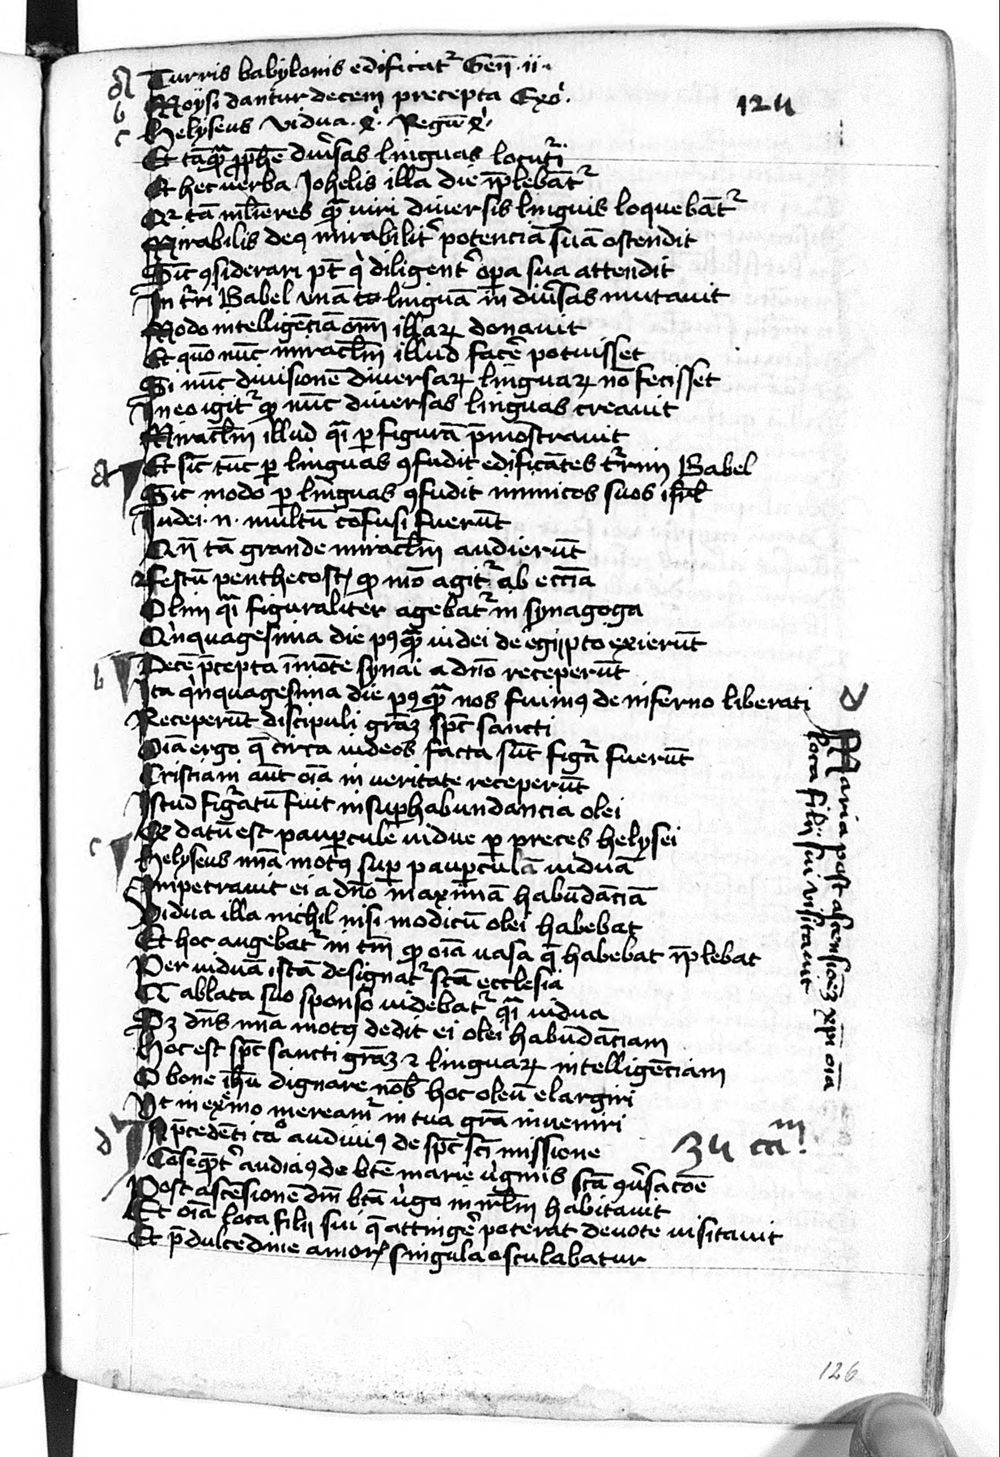 a Turris babylonis edificatʳ Geñ. ii.
b Moysi dantur decem precepta Exo.
c helyseus vidua. Regū
124
Et tāqͣ ꝓphē diṽsas linguas locuti
Et hec verba Johelis illa die īplebātʳ
Qꝛ tā mlieres qͣ viri diversis linguis loquebātʳ
Mirabilis deꝰ mirabilitʳ potenciā suā ostendit
Sic ꝯsiderari pt̄ qi diligentʳ oꝑa sua attendit
In tʳri Babel vnā linguā in diũsas mutavit
Modo intelligēciā om̄ illaꝝ donavit
Et quō nūc miracl̄m illud facʳe potuisset
Si nūc divisionē diversaꝝ linguaꝝ nō fecisset
In eo igitʳ qꝫ nūc diversas linguas creavit
Miracl̄m illud qͣi ꝑ figurā p̄mōstravit
a Et sic tūc ꝑ linguas ꝯfudit edificātes tʳrim Babel
Sic modo ꝑ linguas ꝯfudit inimicos suos isrl̄
Judei .n. multū cōfusi fuerūt
Qn̄ tā grande miracl̄m audierūt
festū penthecostꝭ qꝫ mō agitʳ ab ecc̄ia
Olim qͣi figuraliter agebatʳ in synagoga
Qinquagesima die pꝰqͣ iudei de egipto exierūt
b Decē p̄cepta ī mōte synai a dn̄o receperūt
Ita qinquagesima die pꝰqͣ nos fuimꝰ de inferno liberati
Receperūt discipuli gr̄aꝫ spc̄ sancti
Oīa ergo q̄ circa iudeos facta sūt figʳa fuerūt
Cristiani aūt oīa in veritate receperūt
Istud figʳatū fuit in suꝑhabundancia olei
Qꝫ datū est pauꝑcule vidue ꝑ preces helysei
c helyseus mīa motꝰ suꝑ pauꝑculā viduā
Impetravit ei a dn̄o maximā habūdāciā
Vidua illa nichil nisi modicū olei habebat
Et hoc augebatʳ in tm̄ qꝫ oīa vasa q̄ habebat īplebat
Per viduā istā designatʳ scā ecclesia
Q ablata suo sponso videbatʳ qͣi vidua
Sꝫ dn̄s mīa motꝰ dedit ei olei habūdāciam
hoc est spc̄ sancti gr̄aꝫ ⁊ linguaꝝ intelligēciam
O bone ihū dignare nob̄ hoc oleū elargiri
Vt in exͣmo mereamʳ in tua gr̄a inveniri
d In p̄cedēti caͦ audivimꝰ de spc̄ sci missione
34 caᵐ!
Cōseqͣt̄ audiaꝰ de btē marie vgīnis scā ꝯṽsacōe
Post ascēsionē dn̄i btā vgo in irl̄m habitavit
Et oīa loca filii sui q̄ attingʳe poterat devote visitavit
Et p̄ dulcedine amorꝭ singula osculabatur
d Maria post ascēsiōeꝫ xp̄i oīa
loca filii sui visitavit
126